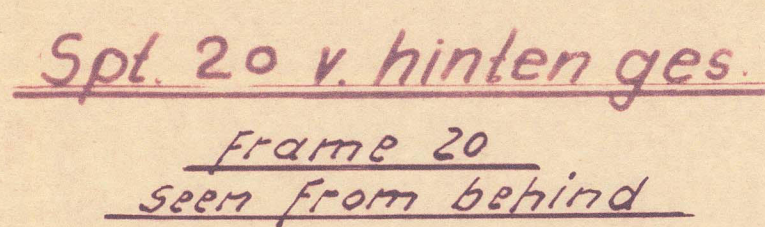 Spt. 20 v. hinten ges.
Frame 20
seen from behind